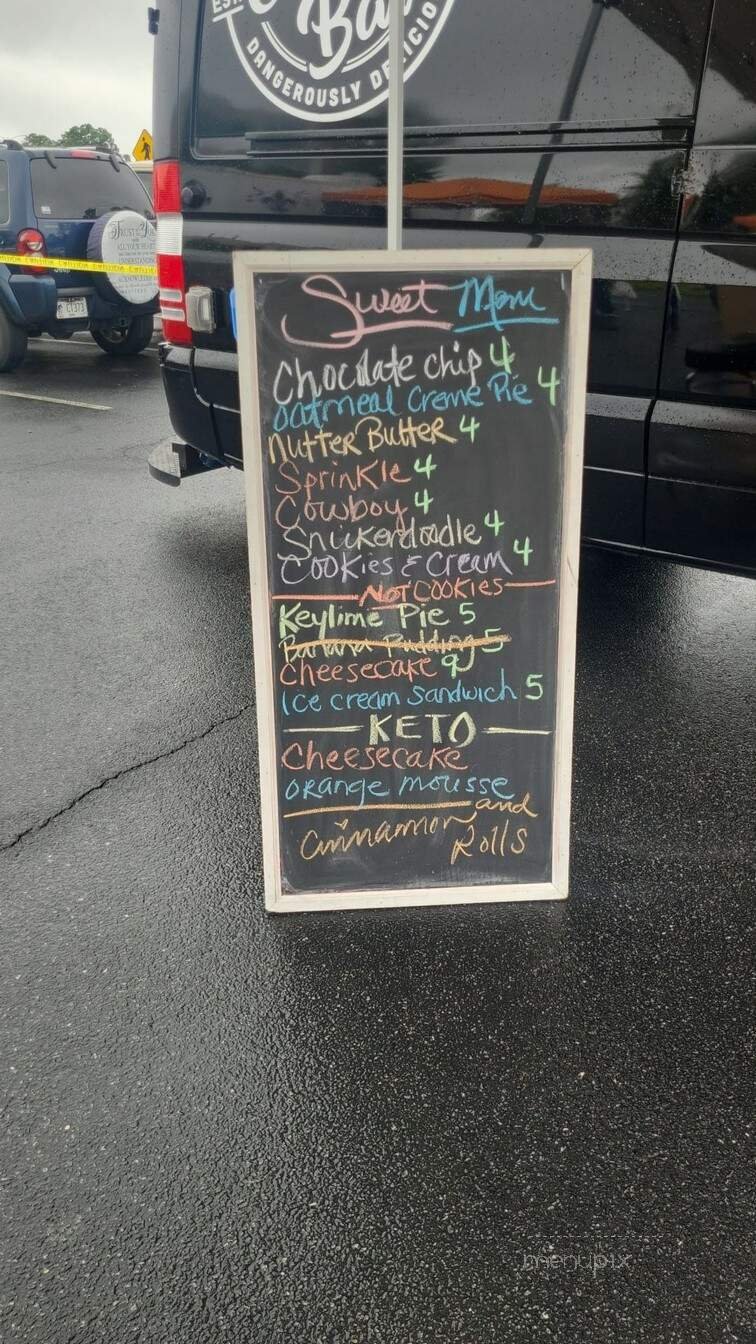 EST
Ba
DANGEROUSLY DELICIO
TRUST IN THE
ALL YOUR
CAUTION
Sweet Menu
Chocolate Chip 4
Oatmeal Creme Pie 4
Nutter Butter 4
Sprinkle 4
Cowboy 4
Snickerdoodle 4
Cookies & Cream 4
NOT COOKIES
Keylime Pie 5
Banana Pudding 5
Cheesecake 9
Ice cream sandwich 5
KETO
Cheesecake
Orange mousse
and
Cinnamon
Rolls
menupix